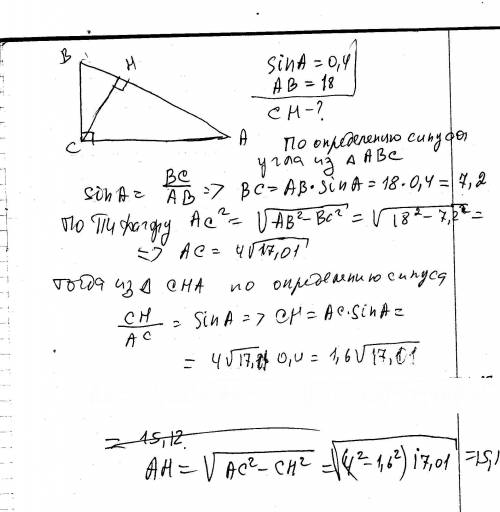 B H
C A
sinA = 0,4
AB = 18
CH - ?
По определению синуса
угла из △ ABC
sinA = BC/AB => BC = AB·sinA = 18·0,4 = 7,2
По Пифагору AC² = √AB² - BC² = √18² - 7,2² =
=> AC = 4√17,01
тогда из △ CHA по определению синуса
CH/AC = sinA => CH = AC·sinA =
= 4√17, 0,4 = 1,6√17,01
= 15,12
AH = √AC² - CH² = √(4² - 1,6²) 17,01 = 15,1